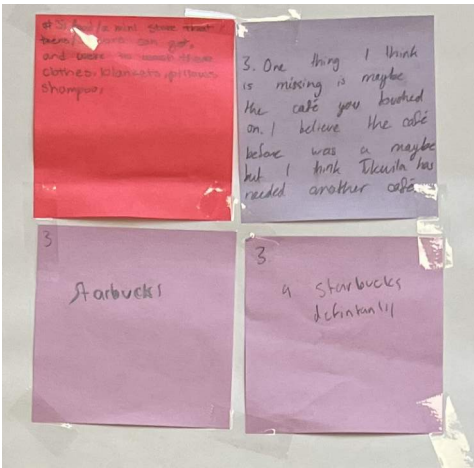 mini store that
teens/ can get,
and user to wash there
clothes, blankets, pillows
shampoo,
3. One thing I think
is missing is maybe
the café you touched
on. I believe the café
before was a maybe
but I think Tukwila has
needed another café
3
Starbucks
3.
a starbucks
defintanlly